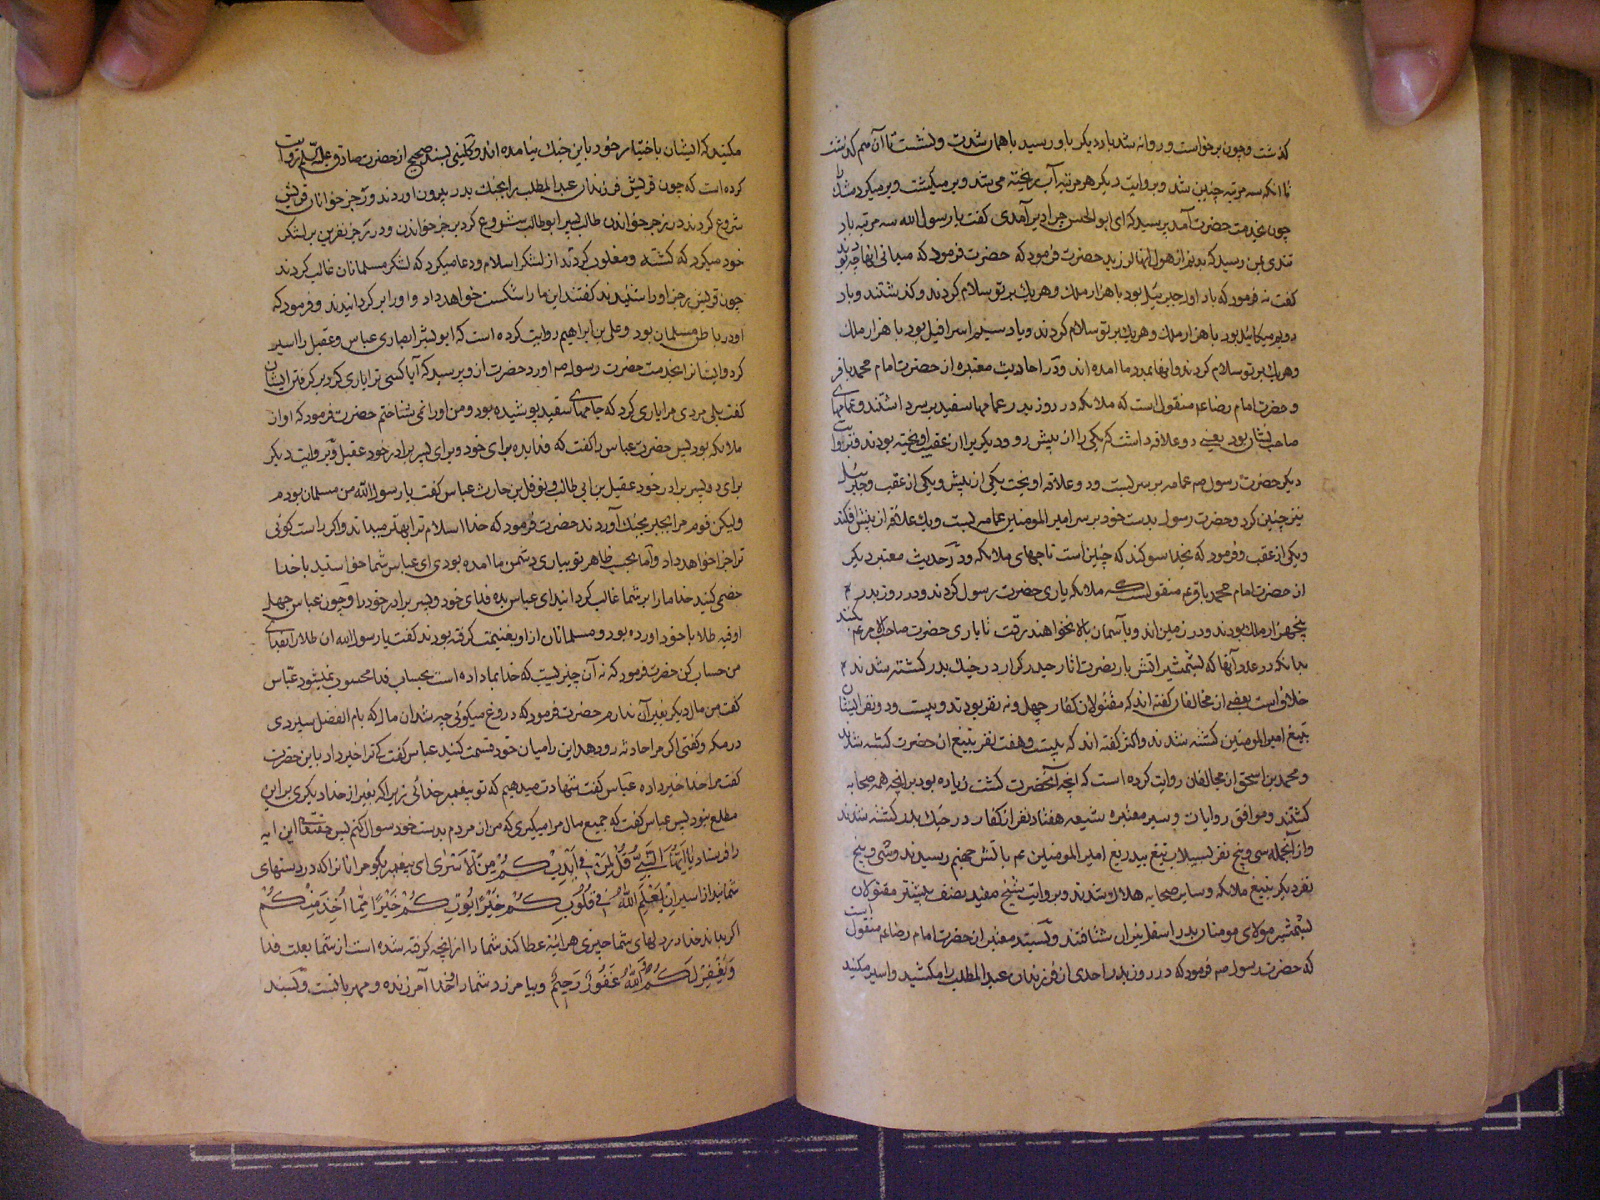 کذشت و چون برخواست و روانه شد باد دیکر باو رسید با همان شدت و نشست تا آن هم کذشت
تا انکه سه مرتبه چنین شد و بروایت دیکر هر مرتبه آب ریخته می شد و بر میکشت و پر میکرد
چون بخدمت حضرت آمد پرسید که ای ابو الحسن چرا دیر آمدی کفت یا رسول الله سه مرتبه باد
تندی بمن رسید که بدنم از هول انها لرزید حضرت فرمود که میدانی انها چه بودند
کفت نه فرمود که باد اول جبرئیل بود با هزار ملک و هر یک بر تو سلام کردند و کذشتند و باد
دویم میکائیل بود با هزار ملک و هر یک بر تو سلام کردند و باد سیم اسرافیل بود با هزار ملک
و هر یک بر تو سلام کردند و انها بمدد ما امده اند و در احادیث معتبره از حضرت امام محمد باقر
و حضرت امام رضا عم منقول است که ملائکه در روز بدر عمامها سفید بر سر داشتند و عمامهای
صاحب نشان بود یعنی دو علاقه داشت که یکی را از پیش رو و دیکری را از عقب اویخته بودند و بروایت
دیکر حضرت رسول صم عمامه بر سر بست و دو علاقه اویخت یکی از پیش و یکی از عقب و جبرئیل
نیز چنین کرد و حضرت رسول بدست خود بر سر امیر المومنین عمامه بست و یک علاقه از پیش افکند
و یکی از عقب و فرمود که بخدا سوکند که چنین است تاجهای ملائکه و در حدیث معتبر دیکر
از حضرت امام محمد باقر عم منقولست که ملائکه یاری حضرت رسول کردند و در روز بدر
پنجهزار ملک بودند و در زمین اند و بآسمان بالا نخواهند رفت تا یاری حضرت صاحب الامر عم کنند
بدانکه در عدد آنها که بشمشیر اتش بار نصرت اثار حیدر کرار در جنک بدر کشته شدند
خلاف است بعضی از مخالفان کفته اند که مقتولان کفار چهل و نه نفر بودند و بیست و دو نفر ایشان
بتیغ امیر المومنین کشته شدند و اکثر کفته اند که بیست و هفت نفر بتیغ ان حضرت کشته شدند
و محمد بن اسحق از مخالفان روایت کرده است که انچه آنحضرت کشت زیاده بود بر انچه همه صحابه
کشتند و موافق روایات و سیر معتبره شیعه هفتاد نفر از کفار در جنک بدر کشته شدند
و از آنجمله سی و پنج نفر بسیلاب تیغ بیدریغ امیر المومنین عم باتش جهنم رسیدند و سی و پنج
نفر دیکر بتیغ ملائکه و سایر صحابه هلاک شدند و بروایت شیخ مفید نصف بیشتر مقتولان
بشمشیر مولای مومنان بدرک اسفل نیران شتافتند و بسند معتبر از حضرت امام رضا عم منقول است
که حضرت رسول صم فرمود که در روز بدر احدی از فرزندان عبد المطلب را مکشید و اسیر مکنید
مکنید که ایشان باختیار خود باین جنک نیامده اند و کلینی بسند صحیح از حضرت صادق علیه السلم روایت
کرده است که چون قریش فرزندان عبد المطلب را بجنک بدر بیرون اوردند و رجز خوانان قریش
شروع کردند در رجز خواندن طالب پسر ابو طالب شروع کرد برجز خواندن و در رجز نفرین بر لشکر
خود میکرد که کشته و مغلوب کردند از لشکر اسلام و دعا میکرد که لشکر مسلمانان غالب کردند
چون قریش رجز او را شنیدند کفتند این ما را شکست خواهد داد و او را بر کردانیدند و فرمود که
او در باطن مسلمان بود و علی بن ابراهیم روایت کرده است که ابو بشر انصاری عباس و عقیل را اسیر
کرد و ایشانرا بخدمت حضرت رسول صم اورد حضرت از او پرسید که آیا کسی ترا یاری کرد بر کرفتن ایشان
کفت بلی مردی مرا یاری کرد که جامهای سفید پوشیده بود و من او را نمی شناختم حضرت فرمود که او از
ملائکه بود پس حضرت عباس را کفت که فدا بده برای خود و برای پسر برادر خود عقیل و بروایت دیکر
برای دو پسر برادر خود عقیل بن ابی طالب و نوفل بن حارث عباس کفت یا رسول الله من مسلمان بودم
ولیکن قوم مرا بجبر بجنک آوردند حضرت فرمود که خدا اسلام ترا بهتر میداند و اکر راست کوئی
ترا جزا خواهد داد و اما بحسب ظاهر تو بیاری دشمن ما امده بودی ای عباس شما خواستید با خدا
خصمی کنید خدا ما را بر شما غالب کردانید ای عباس بده فدای خود و پسر برادر خود را و چون عباس چهل
اوقیه طلا با خود اورده بود و مسلمانان از او بغنیمت کرفته بودند کفت یا رسول الله ان طلا را بفدای
من حساب کن حضرت فرمود که نه آن چیزیست که خدا بما داده است بحساب فدا محسوب نمیشود عباس
کفت من مال دیکر بغیر آن ندارم حضرت فرمود که دروغ میکوئی چه شد ان مال که بام الفضل سپردی
در مکه و کفتی اکر مرا حادثه رو دهد این را میان خود قسمت کنید عباس کفت که ترا خبر داد باین حضرت
کفت مرا خدا خبر داده عباس کفت شهادت میدهم که تو پیغمبر خدائی زیرا که بغیر از خدا دیکری بر این
مطلع نبود پس عباس کفت که جمیع مال مرا میکیری که من از مردم بدست خود سوال کنم پس حقتعالی این ایه
را فرستاد یا ایها النبی قل لمن فی ایدیکم من الاسری ای پیغمبر بکو مر انانرا که در دستهای
شمایند از اسیران ان یعلم الله فی قلوبکم خیرا یوتکم خیرا مما اخذ منکم
اکر بداند خدا در دلهای شما چیزی هر اینه عطا کند شما را از انچه کرفته شده است از شما بعلت فدا
و یغفر لکم و الله غفور رحیم و بیامرزد شما را و خدا آمرزنده و مهربانست و بسند